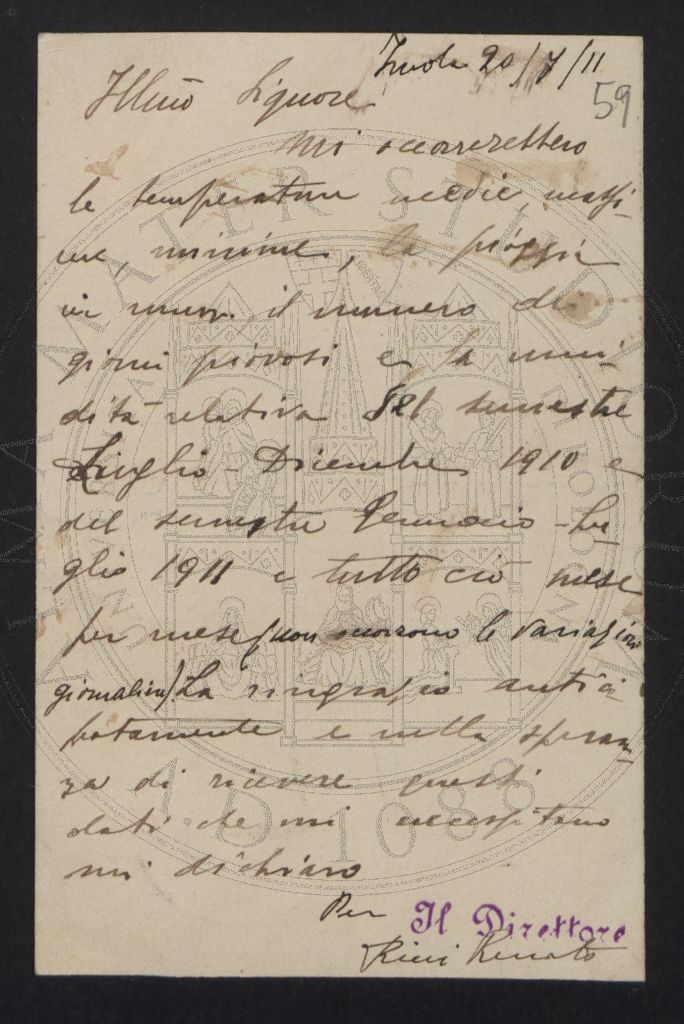 Imola 20/7/11
59
Illmo Signore
Mi occorrerebbero
le temperature medie, massi-
me, minime, la pioggia
in mm. il numero di
giorni piovosi e la umi-
dità relativa del semestre
Luglio - Dicembre 1910 e
del semestre Gennaio - Lu-
glio 1911 e tutto ciò mese
per mese (non occorrono le variazioni
giornaliere). La ringrazio antici-
patamente e nella speran-
za di ricevere questi
dati che mi necessitano
mi dichiaro
Per Il Direttore
Ricci Renato
ALMA MATER STUDIORUM
A.D. 1088